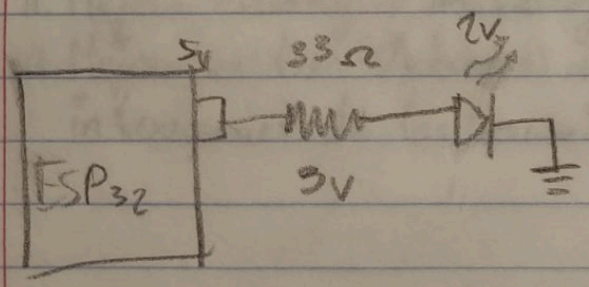 5v
33Ω
2V
ESP32
3V